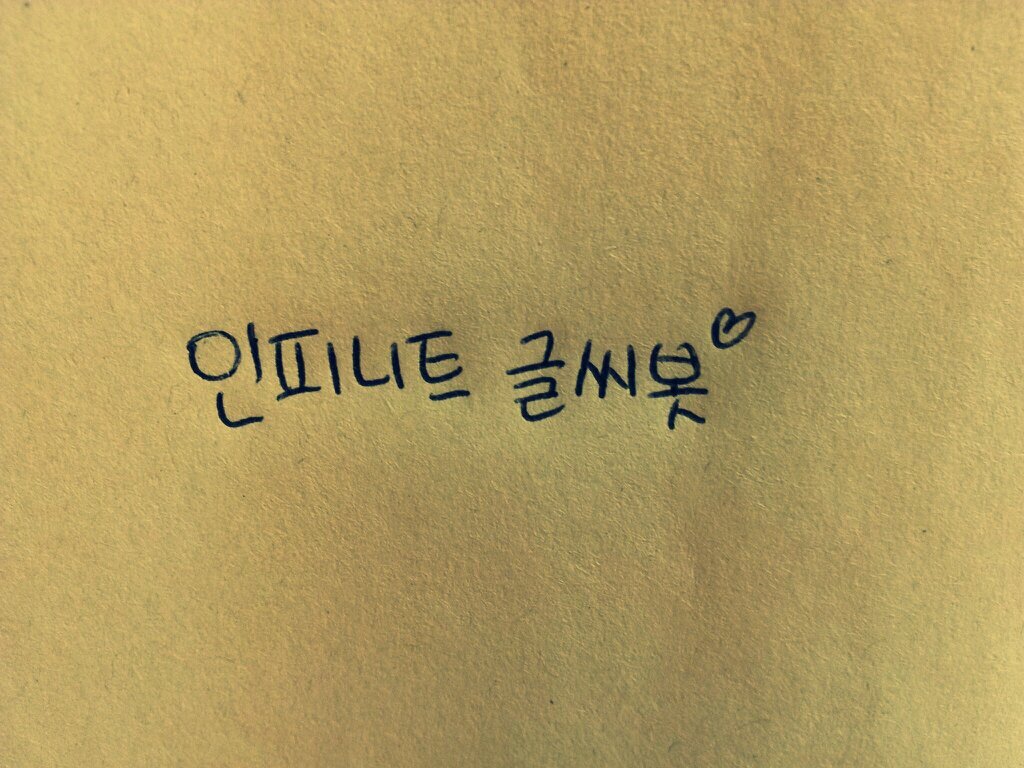 인피니트 글씨봇♡